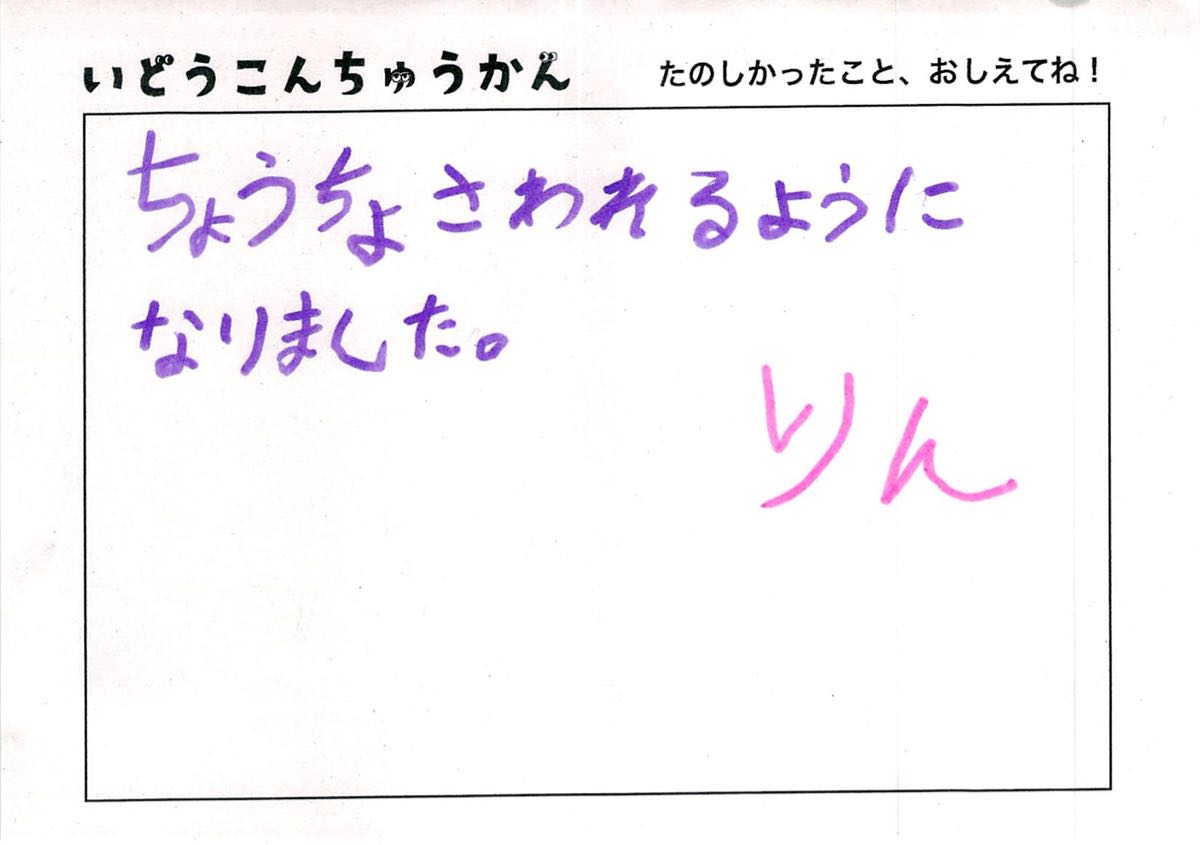 いどうこんちゅうかん
たのしかったこと、おしえてね!
ちょうちょさわれるように
なりました。
りん